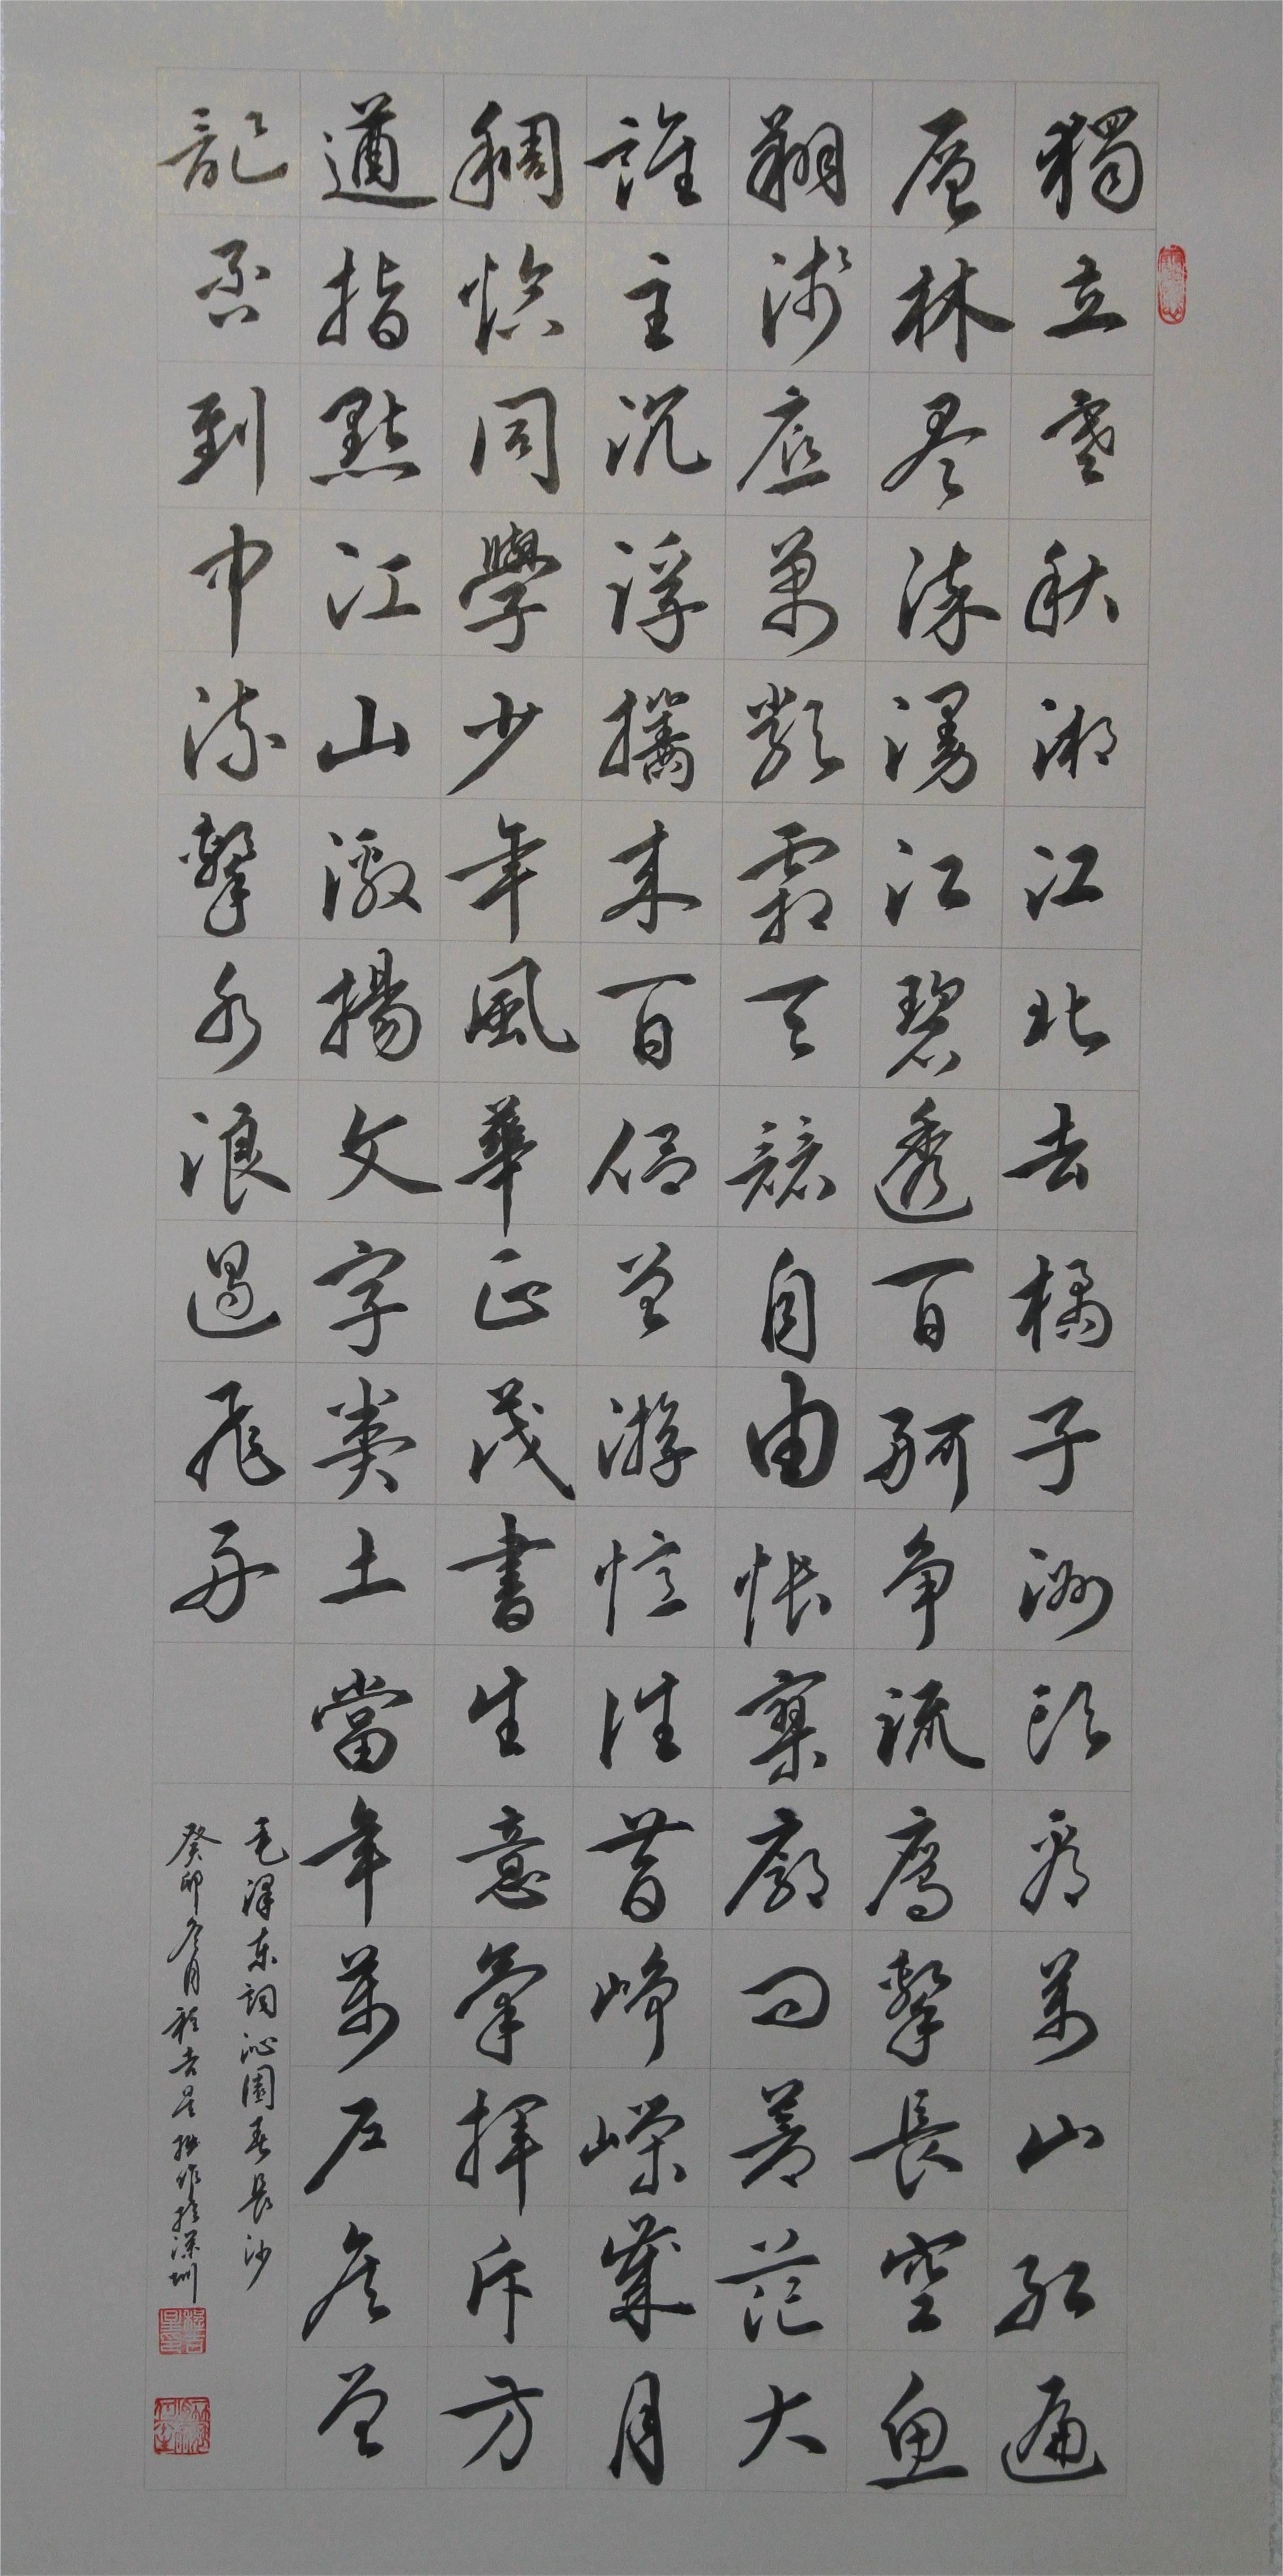 獨立寒秋湘江北去橘子洲頭看萬山紅遍
層林盡染漫江碧透百舸爭流鷹擊長空魚
翔淺底萬類霜天競自由悵寥廓問蒼茫大
誰主沉浮攜來百侶曾游憶往昔崢嶸歲月
稠恰同學少年風華正茂書生意氣揮斥方
遒指點江山激揚文字糞土當年萬戶侯曾
記否到中流擊水浪遏飛舟
毛澤東詞沁園春長沙
癸卯冬月程吉星拙作於深圳